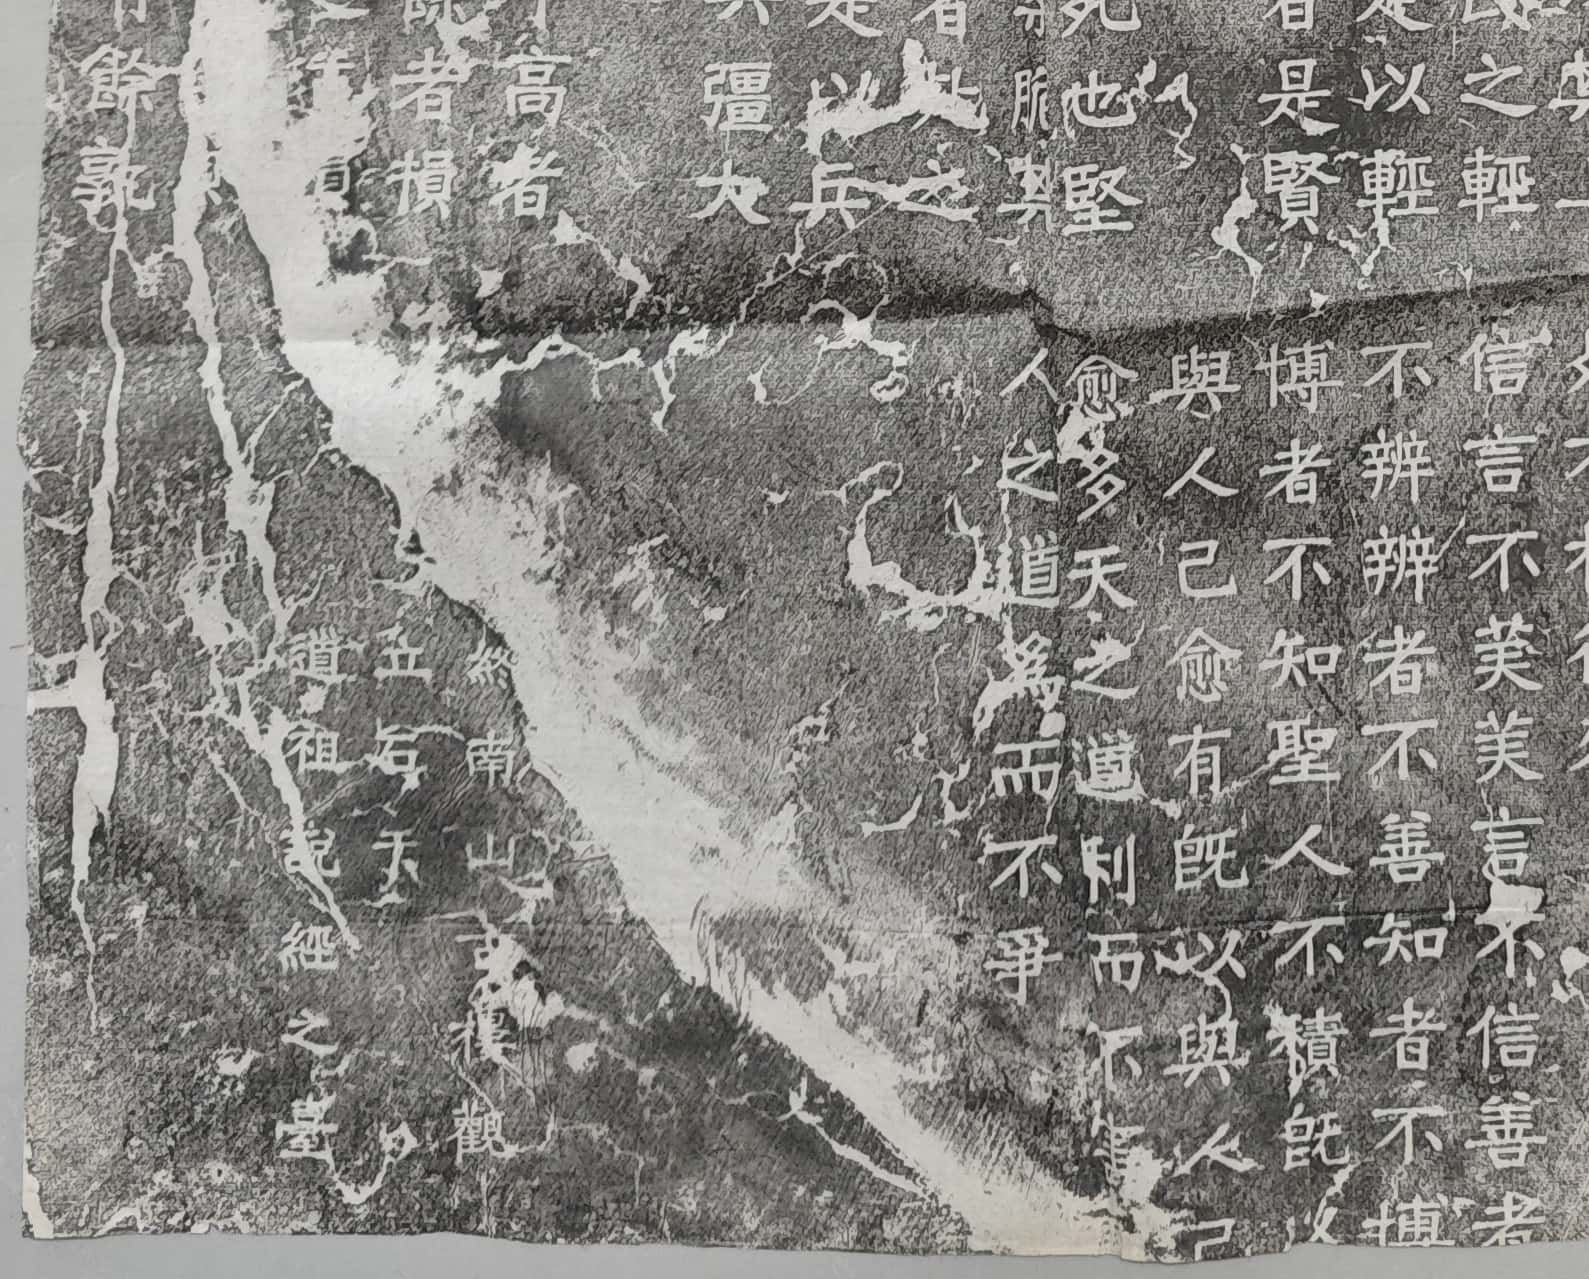 民之輕
是以輕
者是賢
死也堅
柔脆其
者死之
是以兵
彊大
高者
餘者損
有餘孰
信言不美美言不信善者
不辨辨者不善知者不博
博者不知聖人不積旣以
與人己愈有旣以與人己
愈多天之道利而不害
人之道為而不爭
終南山古樓觀
立石于
道祖說經之臺